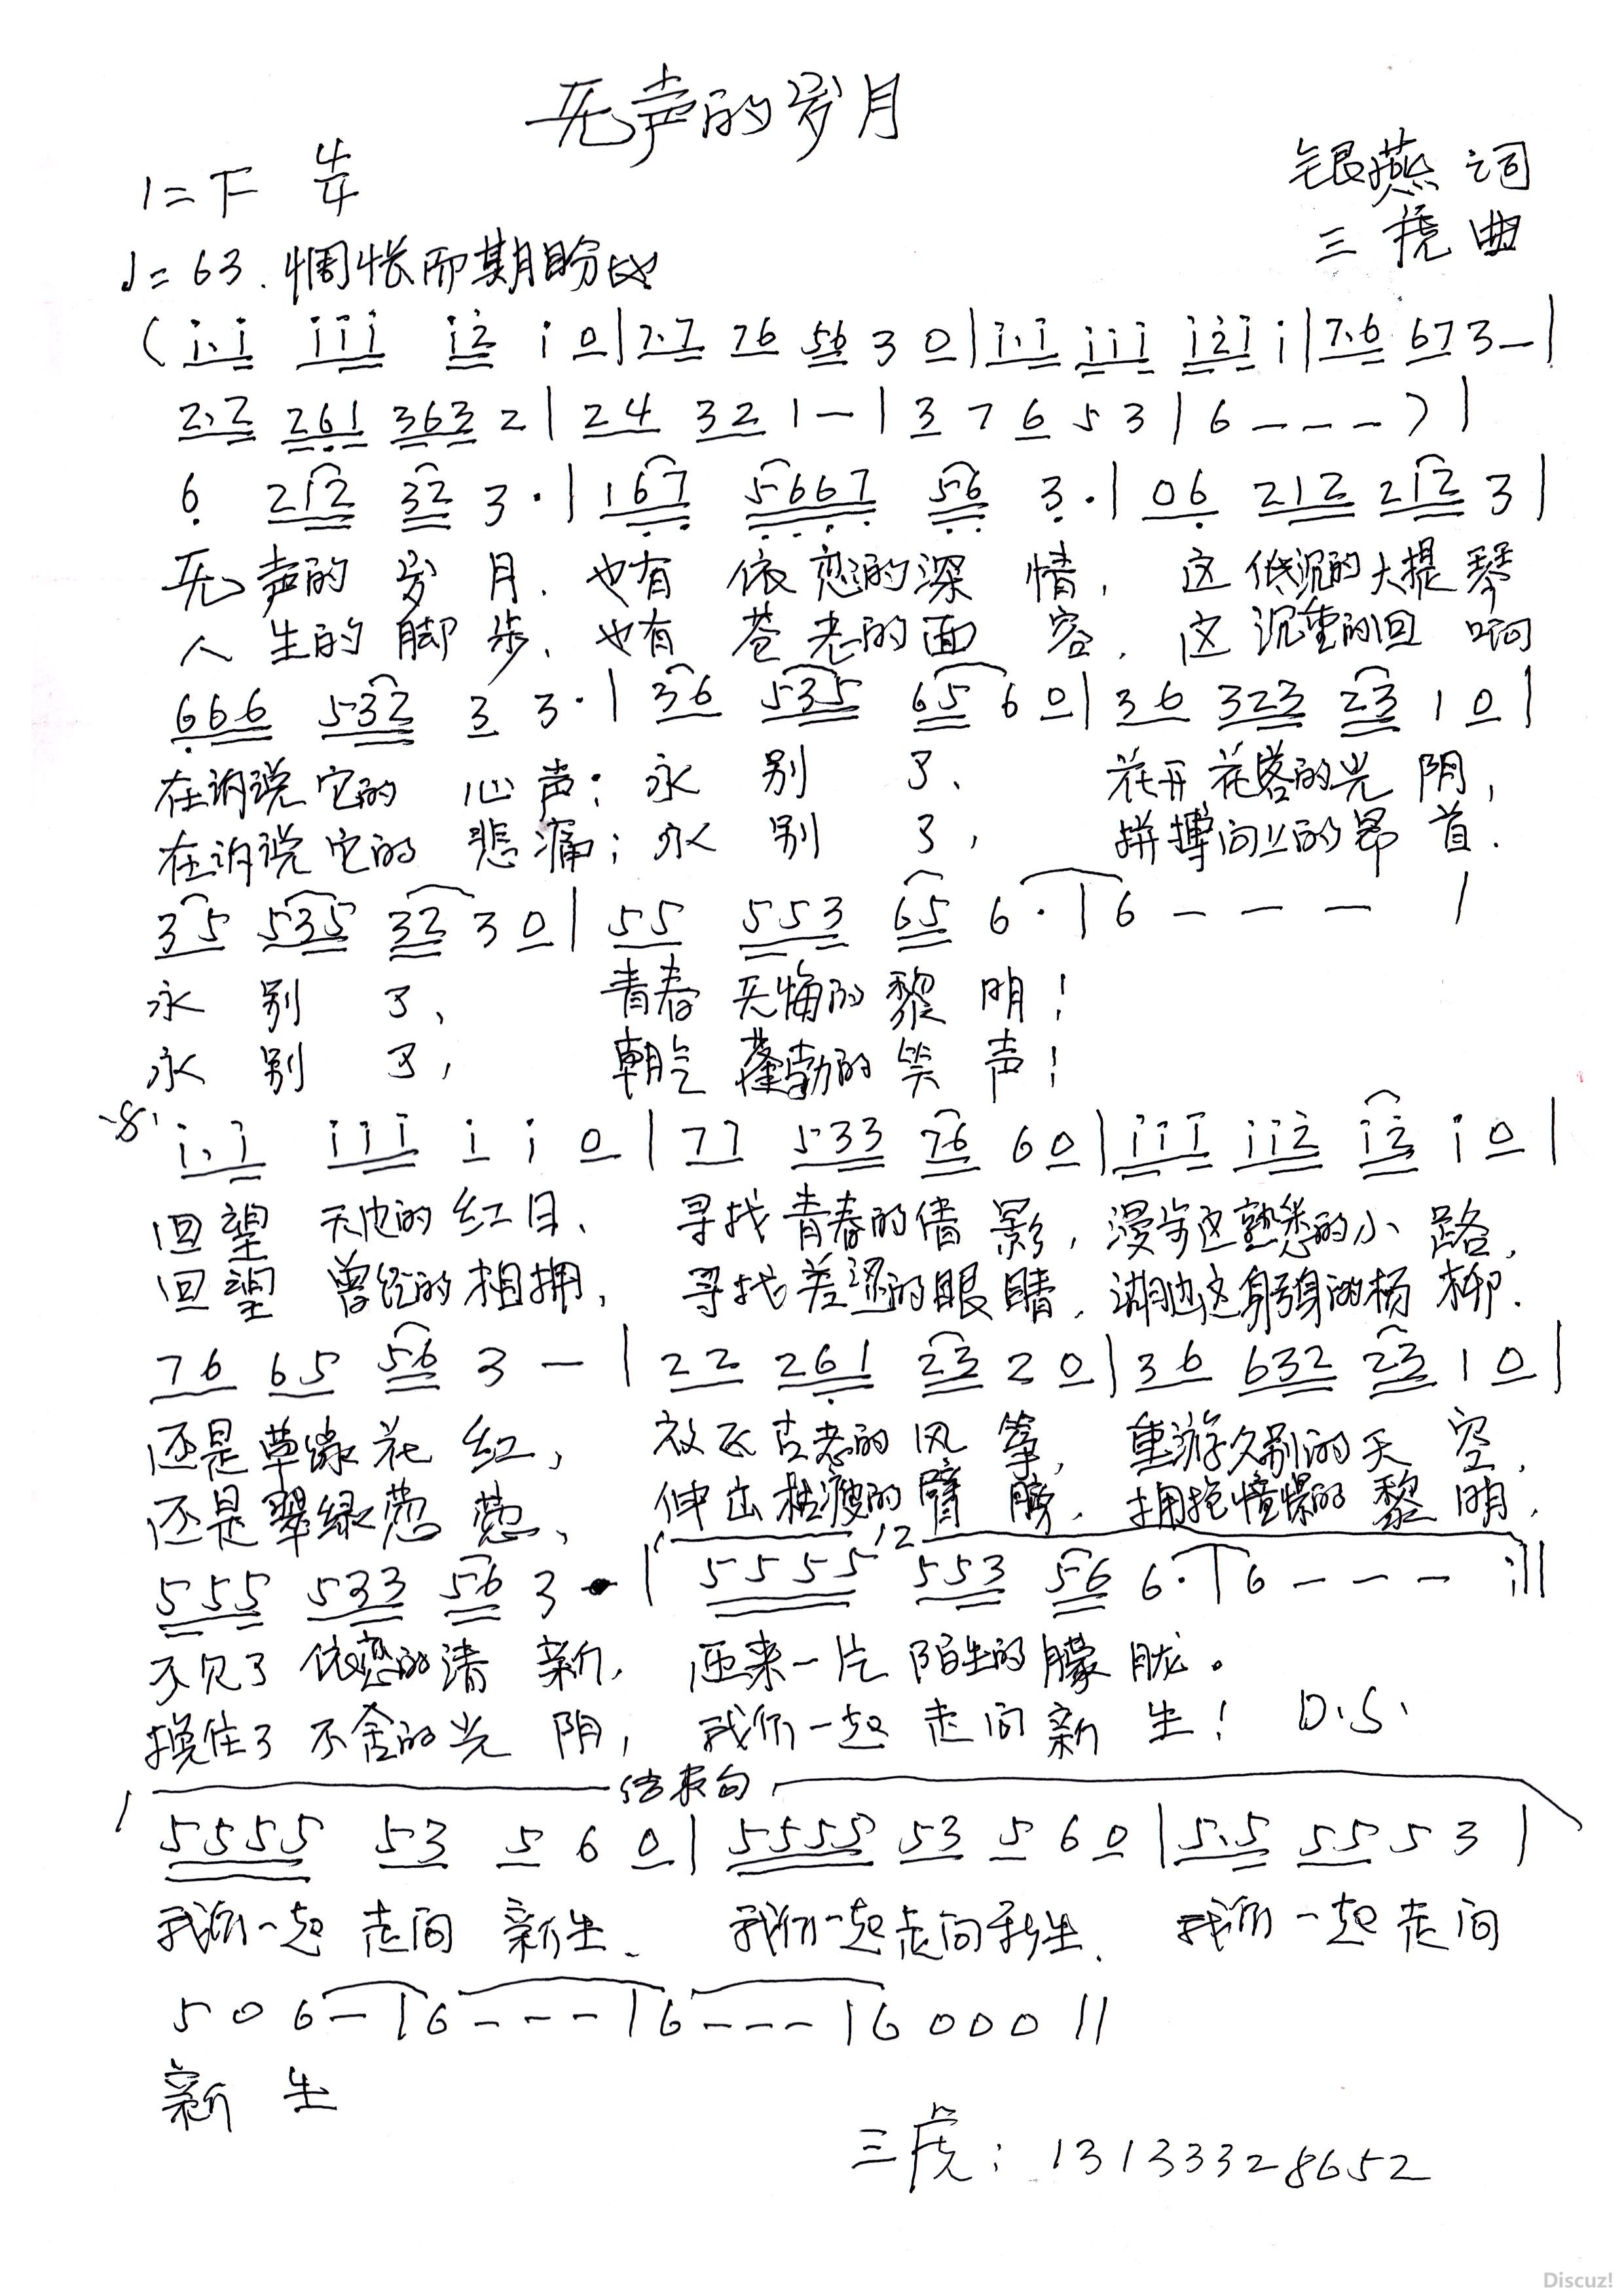 无声的岁月
1=F 4/4
银燕 词
三虎 曲
♩=63. 惆怅而期盼地
(i.i iii i2 i 0|7.7 76 56 3 0|i.i iii i2i i|7.6 67 3-|
2.2 261 363 2|24 32 1-|3 7 6 5 3|6---)|
6 212 32 3.|167 5667 56 3.|06 212 212 3|
无声的岁月、也有依恋的深情，这低沉的大提琴
人生的脚步、也有苍老的面容，这沉重的回响
666 532 3 3.|36 535 65 6 0|36 323 23 1 0|
在诉说它的心声；永别了、花开花落的光阴，
在诉说它的悲痛；永别了，拼搏向上的昂首.
35 535 32 3 0|55 553 65 6.|6---|
永别了、青春无悔的黎明！
永别了，朝气蓬勃的笑声！
i.i iii i i 0|77 533 76 6 0|iii ii2 i2 i 0|
回望天边的红日、寻找青春的倩影，漫步这熟悉的小路，
回望曾经的相拥，寻找羞涩的眼睛，湖边这躬身的杨柳.
76 65 56 3-|22 261 23 2 0|36 632 23 1 0|
还是草绿花红，放飞古老的风筝，重游久别的天空，
还是翠绿葱葱、伸出枯瘦的臂膀，拥抱憧憬的黎明，
1 2
555 533 56 3.|5555 553 56 6.|6---:||
不见了依恋的清新，迎来一片陌生的朦胧。
挽住了不舍的光阴，我们一起走向新生！ D.S.
结束句
5555 53 5 6 0|5555 53 5 6 0|5.5 55 5 3|
我们一起走向新生、我们一起走向新生、我们一起走向
5 0 6-|6---|6---|6 0 0 0||
新生
三虎：13133328652
Discuz!